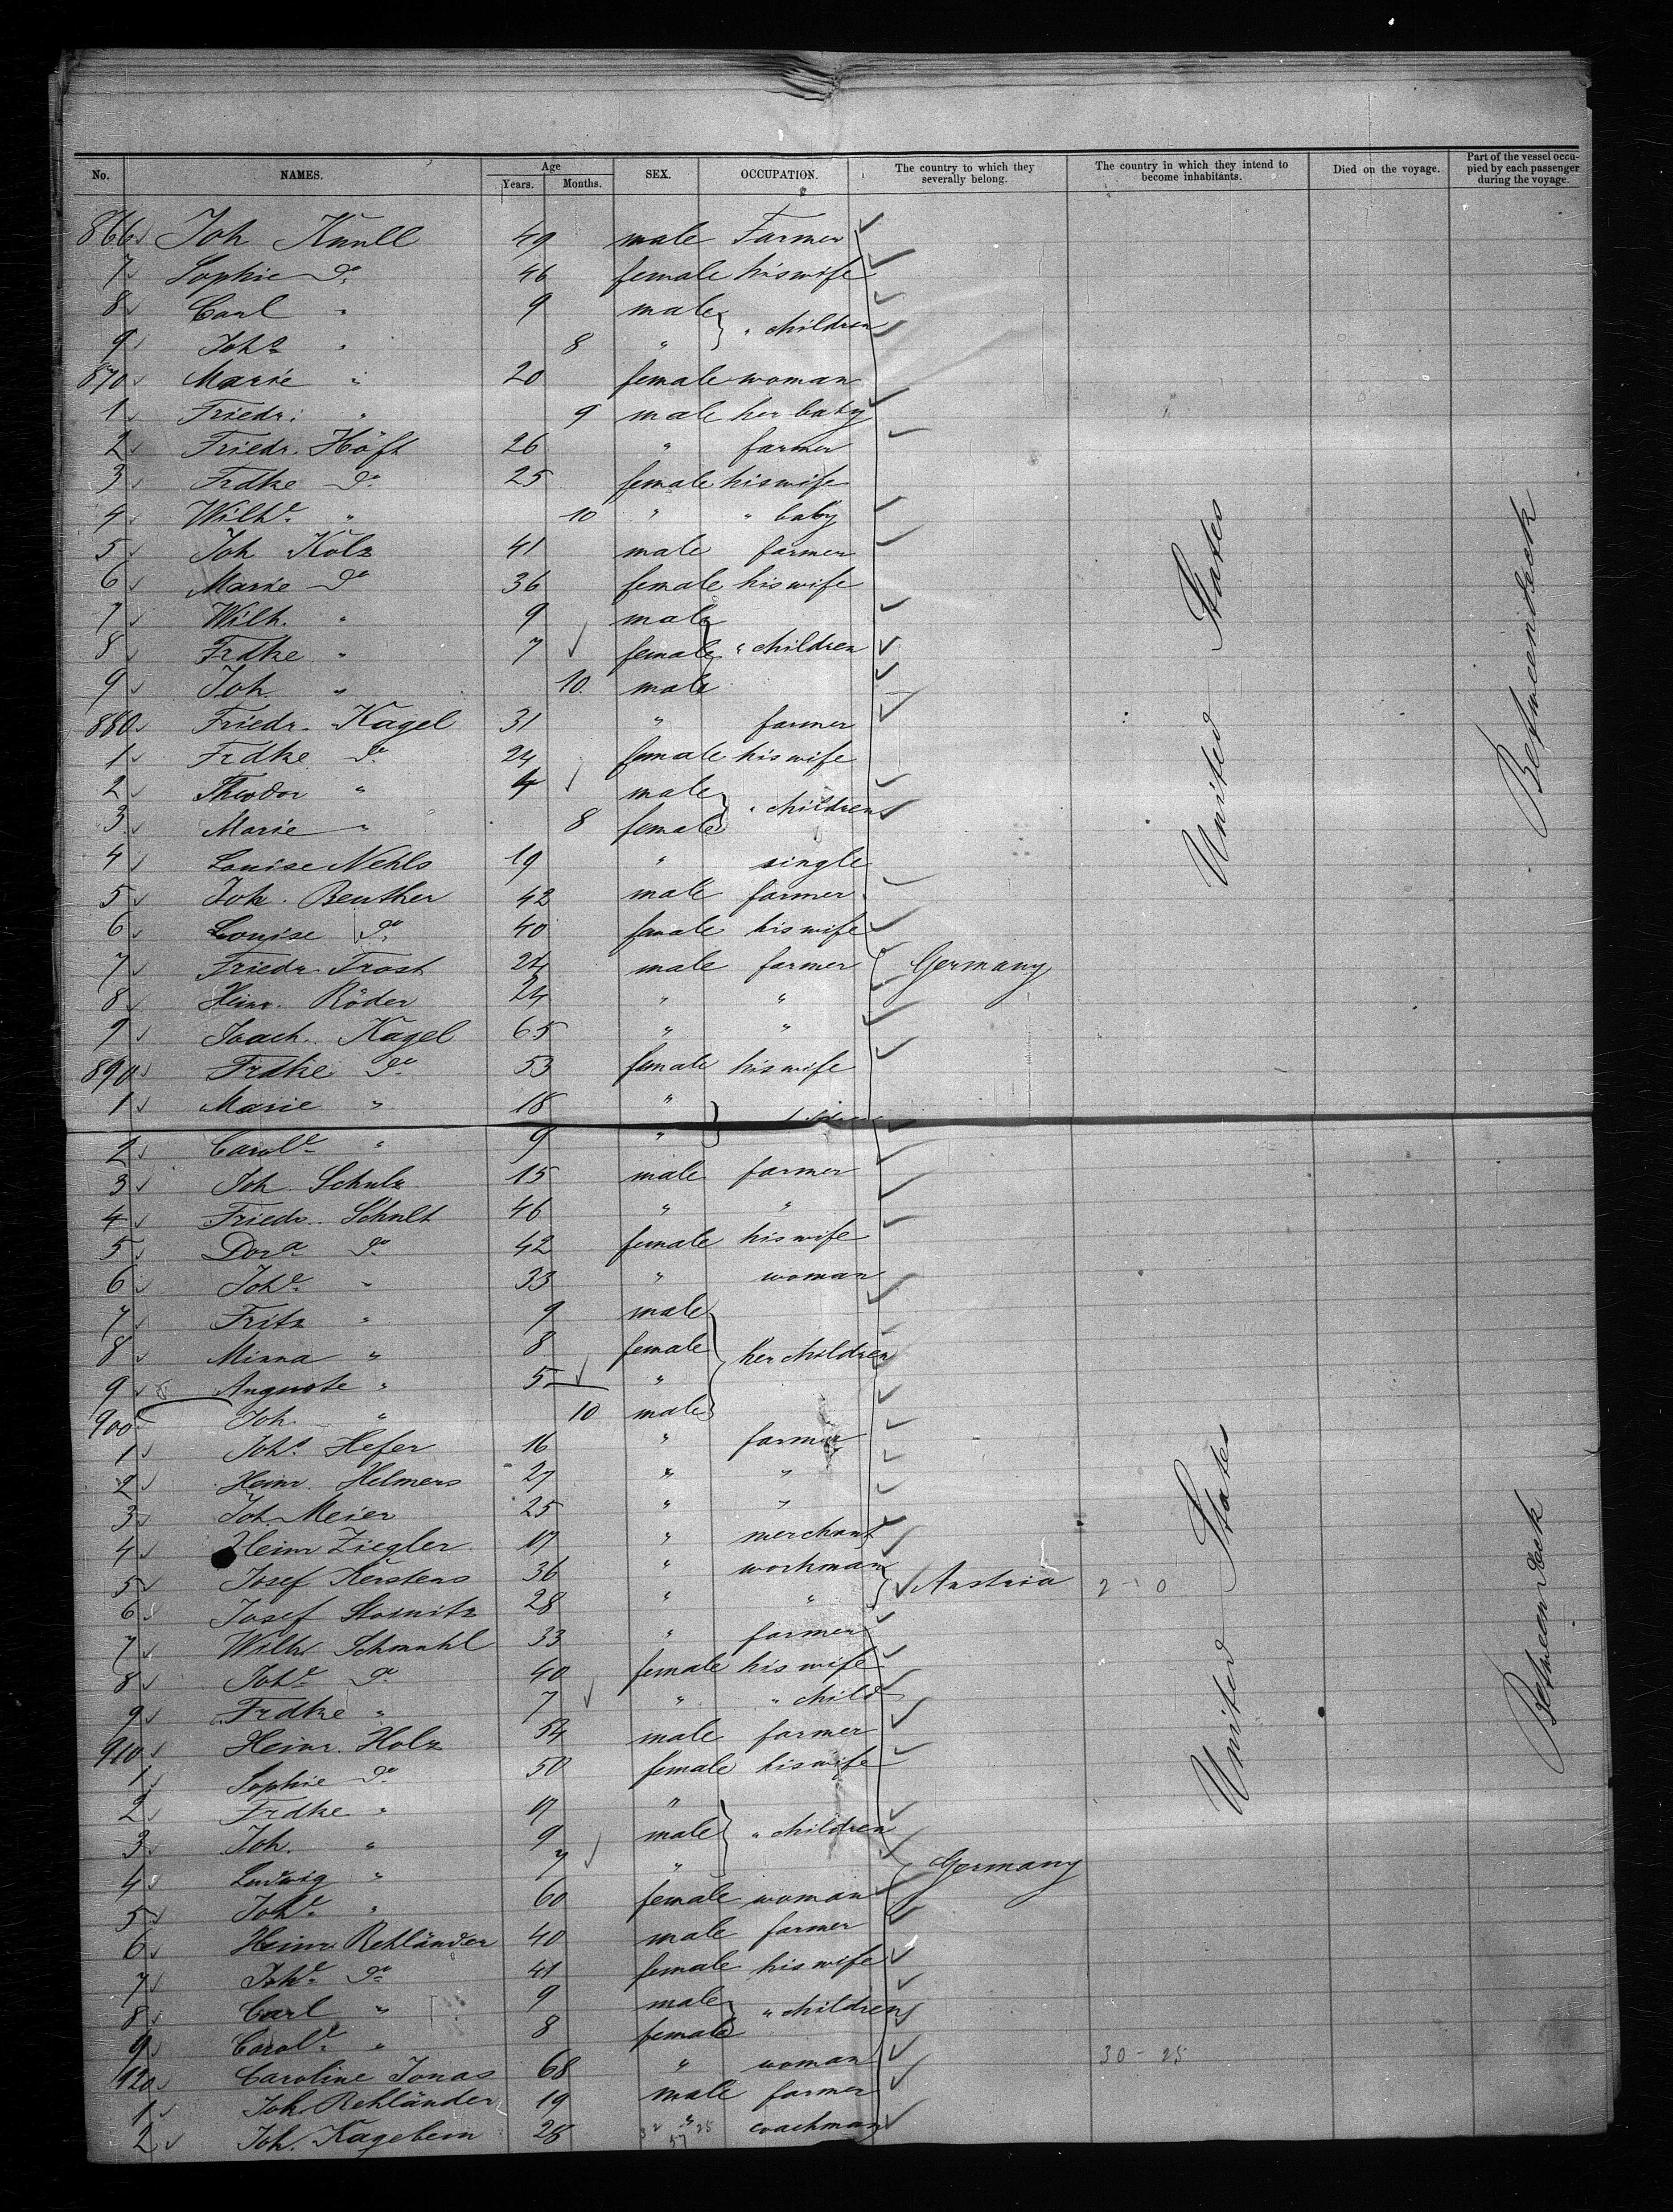 No. NAMES. Age Years. Months. SEX. OCCUPATION. The country to which they severally belong. The country in which they intend to become inhabitants. Died on the voyage. Part of the vessel occupied by each passenger during the voyage.
866 Joh Knull 49 male Farmer
7 Sophie do 46 female his wife
8 Carl " 9 male
9 Johs " 8 " " children
870 Marie " 20 female woman
1 Friedr. " 9 male her baby
2 Friedr. Höft 26 " farmer
3 Frdke do 25 female his wife
4 Wilhe " 10 " " baby
5 Joh Kolz 41 male farmer
6 Marie do 36 female his wife
7 Wilh. " 9 male
8 Frdke " 7 female " children
9 Joh. " 10 male
880 Friedr. Kagel 31 " farmer
1 Frdke do 24 female his wife
2 Theodor " 4 male
3 Marie " 8 female " children
4 Louise Nehls 19 " single
5 Joh. Beuther 42 male farmer
6 Louise do 40 female his wife
7 Friedr. Frost 24 male farmer Germany
8 Heinr. Röder 24 " "
9 Joach. Kagel 65 " "
890 Frdke do 53 female his wife
1 Marie " 18 "
2 Carole " 9 "
3 Joh Schulz 15 male farmer
4 Friedr. Schult 46 " "
5 Dora do 42 female his wife
6 Johe " 33 " woman
7 Fritz " 9 male
8 Minna " 8 female her children
9 Auguste " 5 "
900 Joh. " 10 male
1 Johs Hefer 16 " farmer
2 Heinr. Helmers 27 " "
3 Joh. Meier 25 " "
4 Heinr Ziegler 17 " merchant
5 Josef Kerstens 36 " workman Austria
6 Josef Stoinitz 28 " "
7 Wilh. Schmuhl 33 " farmer
8 Johe do 40 female his wife
9 Frdke " 7 " " child
910 Heinr. Holz 54 male farmer
1 Sophie do 50 female his wife
2 Frdke " 17 "
3 Joh. " 9 male " children
4 Ludwig " 7 " Germany
5 Johe " 60 female woman
6 Heinr. Rehländer 40 male farmer
7 Johe do 41 female his wife
8 Carl " 9 male " children
9 Carole " 8 female
920 Caroline Jonas 68 " woman 30 - 25
1 Joh. Rehländer 19 male farmer
2 Joh. Kagebein 28 " coachman
United States
Betweendeck
United States
Betweendeck